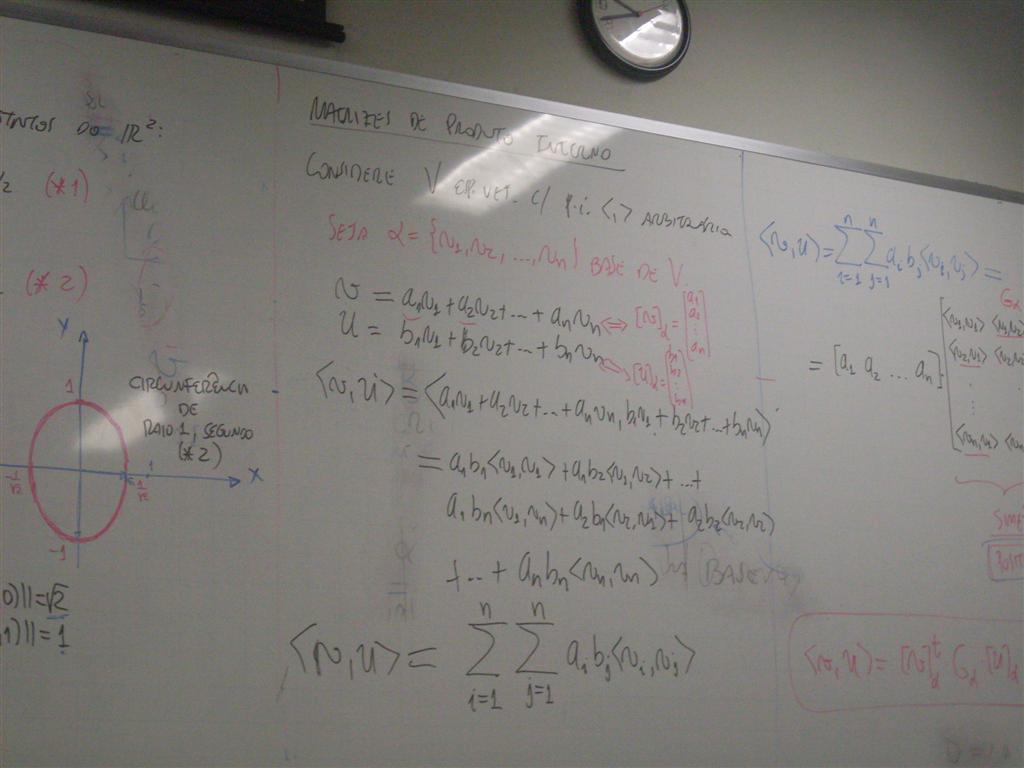 DO IR²:
(*1)
(*2)
Y
1
CIRCUNFERÊNCIA
DE
RAIO 1, SEGUNDO
(*2)
-1/√2
1/√2
1
X
-1
0)||=√2
1)||=1
MATRIZES DE PRODUTO INTERNO
CONSIDERE V ESP. VET. C/ P.i. <,> ARBITRÁRIA
SEJA α = {v1, v2, ..., vn} BASE DE V.
v = a1v1 + a2v2 + ... + anvn ⇔ [v]α = [a1 a2 ⋮ an]
u = b1v1 + b2v2 + ... + bnvn ⇔ [u]α = [b1 b2 ⋮ bn]
<v, u> = <a1v1 + a2v2 + ... + anvn, b1v1 + b2v2 + ... + bnvn>
= a1b1<v1,v1> + a1b2<v1,v2> + ... +
a1bn<v1,vn> + a2b1<v2,v1> + a2b2<v2,v2>
+ ... + anbn<vn,vn>
<v, u> = n∑i=1 n∑j=1 aibj<vi,vj>
<v, u> = n∑i=1 n∑j=1 aibj<vi,vj> =
Gα
= [a1 a2 ... an]
<v1,v1> <v1,v2>
<v2,v1> <v2,v2>
⋮
<vn,v1>
<v, u> = [v]tα Gα [u]α